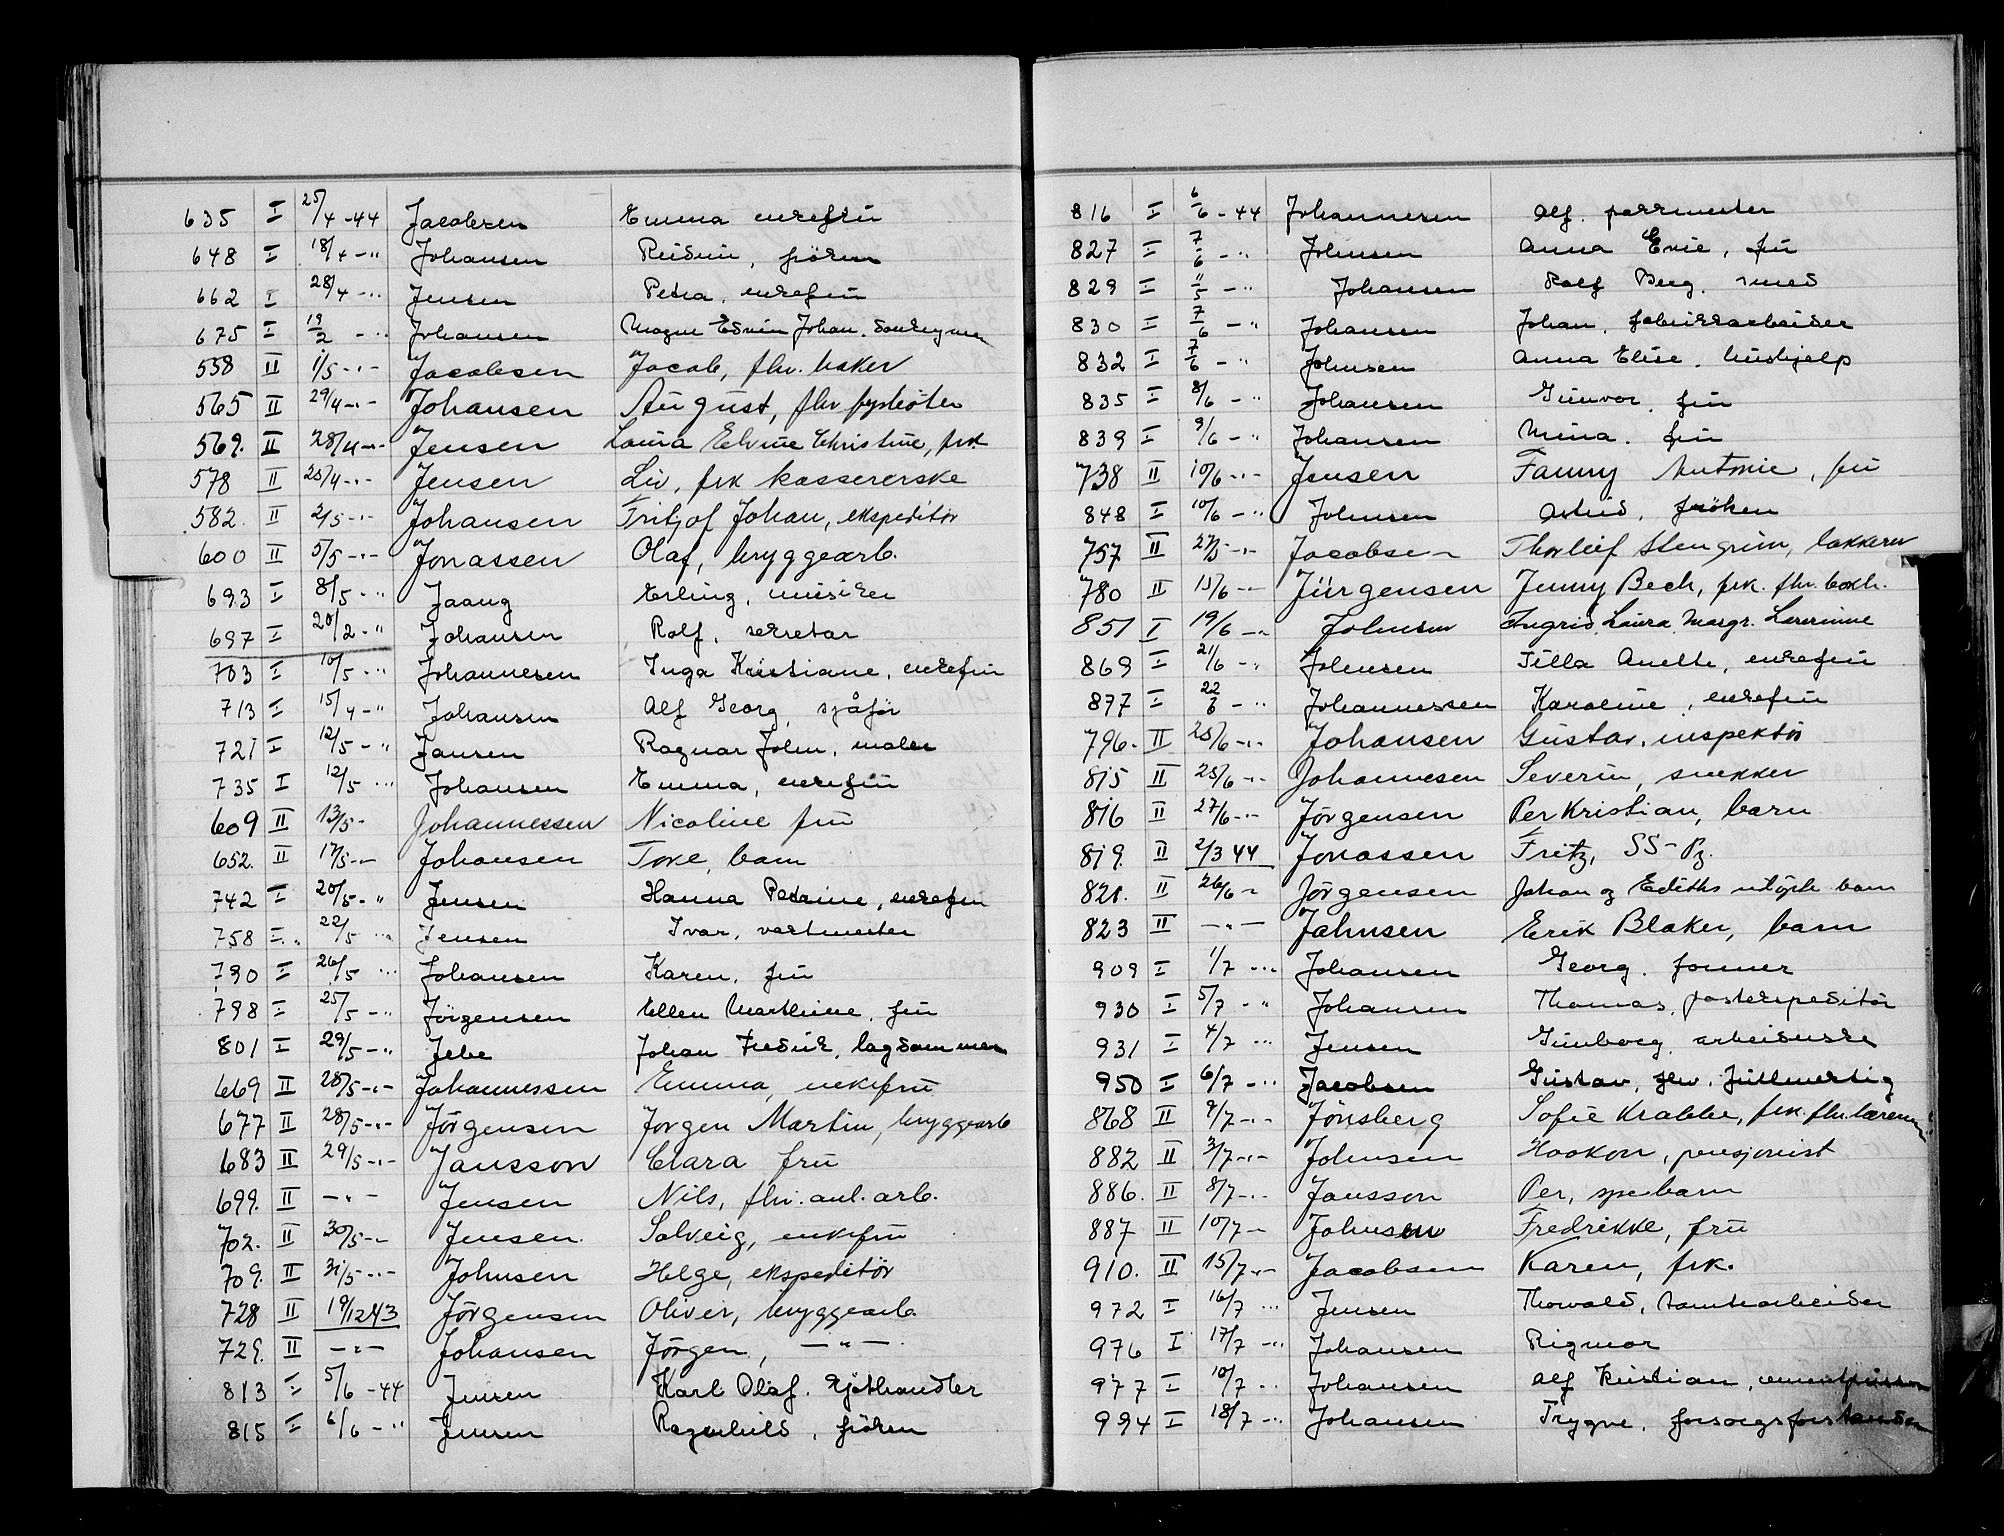 635 I 25/4 -44 Jacobsen Emma enkefru
648 I 18/4 -" Johansen Reidun, frøken
662 I 28/4 -" Jensen Petra, enkefru
675 I 19/2 -" Johansen Magne Edvin Johan.
558 II 1/5 -"- Jacobsen Jacob, fhv. baker
565 II 29/4 -"- Johansen August, fhv fyrbøter
569. II 28/4 -"- Jensen Laura Elvine Christine, frk.
578 II 25/4 -"- Jensen Liv, frk kassererske
582. II 2/5 -"- Johansen Fritjof Johan, ekspeditør
600 II 5/5 -"- Jonassen Olaf, bryggearb.
693 I 8/5 -" Jaang Erling, musiker
697 I 20/2 -" Johansen Rolf, sekretær
703 I 10/5 -" Johannesen Inga Kristiane, enkefru
713 I 15/4 -" Johansen Alf Georg, sjåfør
721 I 12/5 -" Jansen Ragnar John, maler
735 I 12/5 -" Johansen Emma, enkefru
609 II 13/5 - Johannessen Nicoline fru
652. II 17/5 -"- Johansen Tove, barn
742 I 20/5 -" Jensen Hanna Petrine, enkefru
758 I 22/5 -" Jensen Ivar, vaktmester
790 I 26/5 -" Johansen Karen, fru
798 I 25/5 -" Jörgensen Ellen Marthine, fru
801 I 29/5 -" Jebe Johan Fredrik, lagdommer
669 II 28/5 -"- Johannessen Emma, enkefru
677 II 28/5 -"- Jørgensen Jørgen Martin, bryggearb
683 II 29/5 -"- Jansson Clara fru
699. II -"- Jensen Nils, fhv. anl. arb.
702. II 30/5 -"- Jensen Solveig, enkefru
709. II 31/5 -"- Johnsen Helge, ekspeditør
728 II 19/12 43 Jørgensen Oliver, bryggearb.
729. II -"- Johansen Jørgen, -"-
813 I 5/6 -44 Jensen Karl Olaf. kjøtthandler
815 I 6/6 -" Jensen Ragnhild, frøken
816 I 6/6 -44 Johannesen Alf.
827 I 7/6 -" Johnsen Anna Evie, fru
829 I 11/5 -" Johansen Rolf Berg. smed
830 I 7/6 -" Johansen Johan, fabrikkarbeider
832 I 7/6 -" Johnsen Anna Elise. hushjelp
835 I 8/6 -" Johansen Gunvor, fru
839 I 9/6 -" Johansen Mina. fru
738 II 10/6 -"- Jensen Fanny Antonie, fru
848 I 10/6 -" Johnsen Astrid, frøken
757 II 27/5 -"- Jacobsen Thorleif Stengrim, lakkerer
780 II 15/6 -"- Jürgensen Jenny Bech, frk. fhv. bokh.
851 I 19/6 -"- Johnsen Ingrid Laura Margr.
869 I 21/6 -" Johnsen Tilla Anette, enkefru
877 I 22/6 -" Johannessen Karoline, enkefru
796. II 25/6 -"- Johansen Gustav, inspektør
815 II 25/6 -"- Johannesen Severin, snekker
816 II 27/6 -"- Jørgensen Per Kristian, barn
819. II 2/3 44 Jonassen Fritz, SS-Pz.
821. II 26/6 -"- Jørgensen Johan og Ediths udøpte barn
823 II -"- Jahnsen Erik Blaker, barn
909 I 1/7 -" Johansen Georg. former
930 I 5/7 -" Johansen Thomas, postekspeditør
931 I 4/7 -" Jensen Gunborg, arbeiderske
950 I 6/7 -" Jacobsen Gustav, fhv. fullmektig
868 II 9/7 -"- Jønsberg Sofie Krabbe, frk. fhv. lærerinne
882 II 3/7 -"- Johnsen Haakon, pensjonist
886. II 8/7 -"- Jansson Per, spebarn
887 II 10/7 -"- Johnsen Fredrikke, fru
910. II 15/7 -"- Jacobsen Karen, frk.
972 I 16/7 -" Jensen Thorvald, tomtearbeider
976 I 17/7 -" Johansen Rigmor
977 I 10/7 -" Johansen Alf Kristian,
994 I 18/7 -" Johansen Trygve, forsorgsforstander